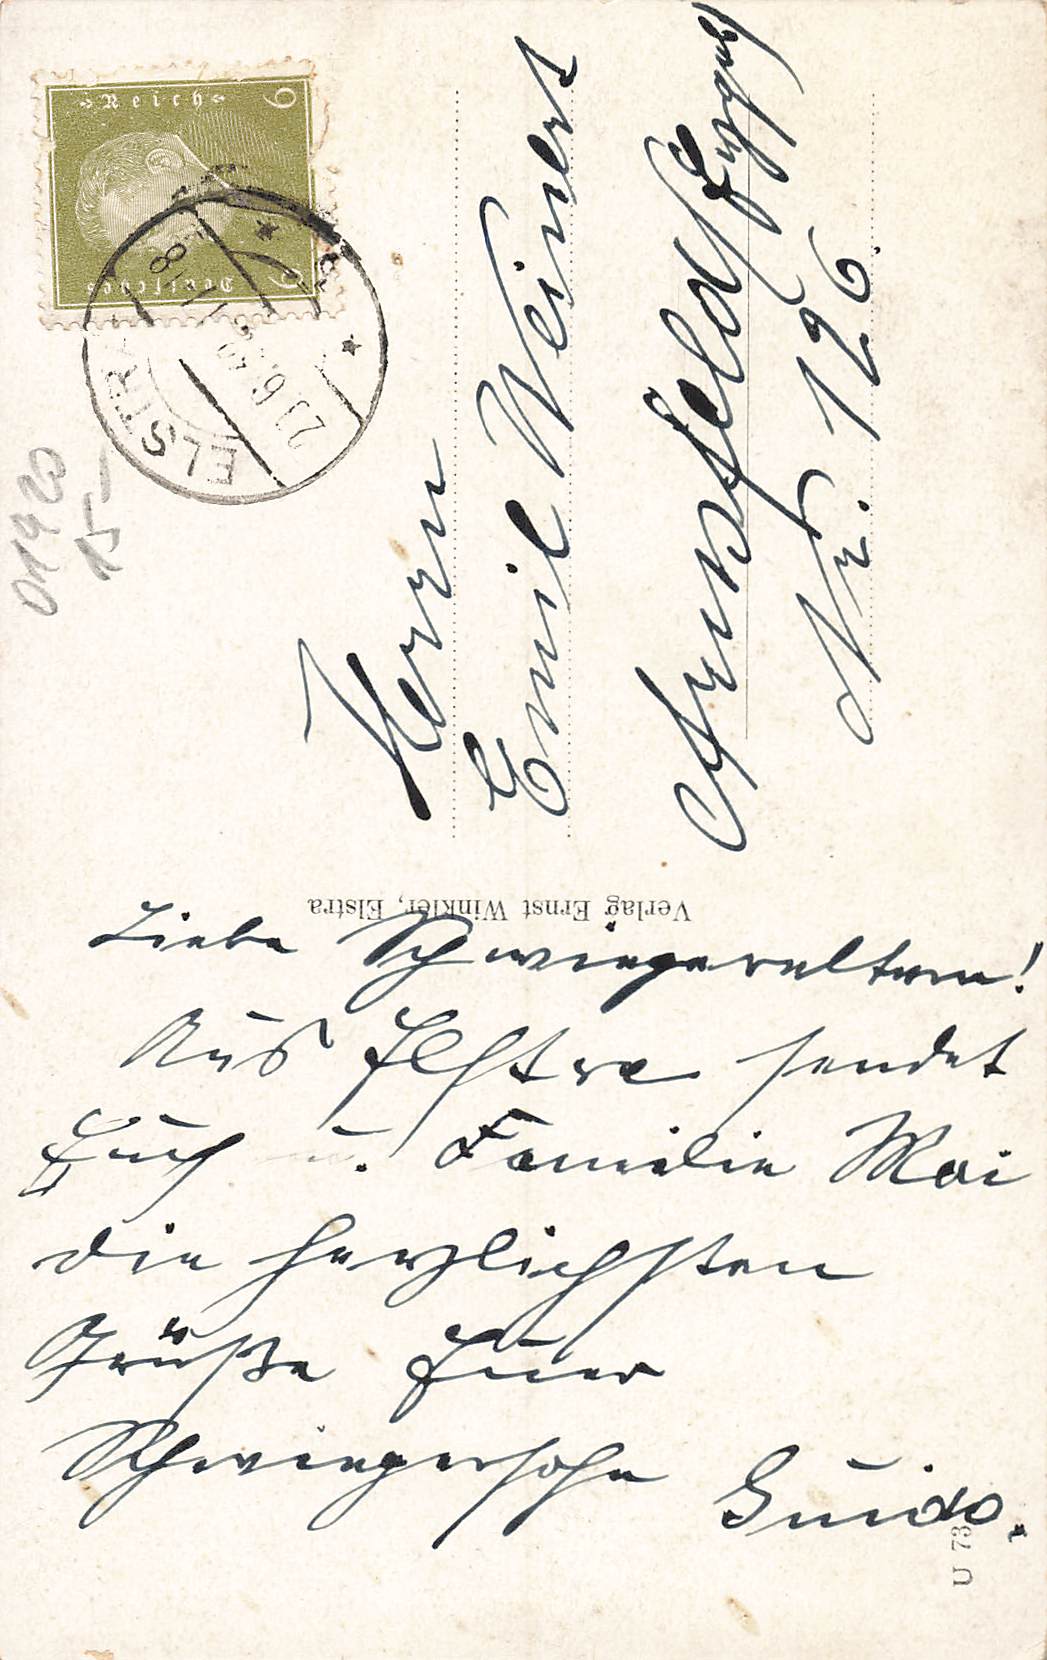 Liebe Schwiegereltern!
Aus Elstra sendet
Euch u. Familie Mai
die herzlichsten
Grüße Euer
Schwiegersohn Guido.
Herrn
Emil Weinert
Arnsfeld Erzgeb.
Nr. 126.
Verlag Ernst Winkler, Elstra
U 73
Deutsches
Reich
6
6
ELSTRA
01920
15-